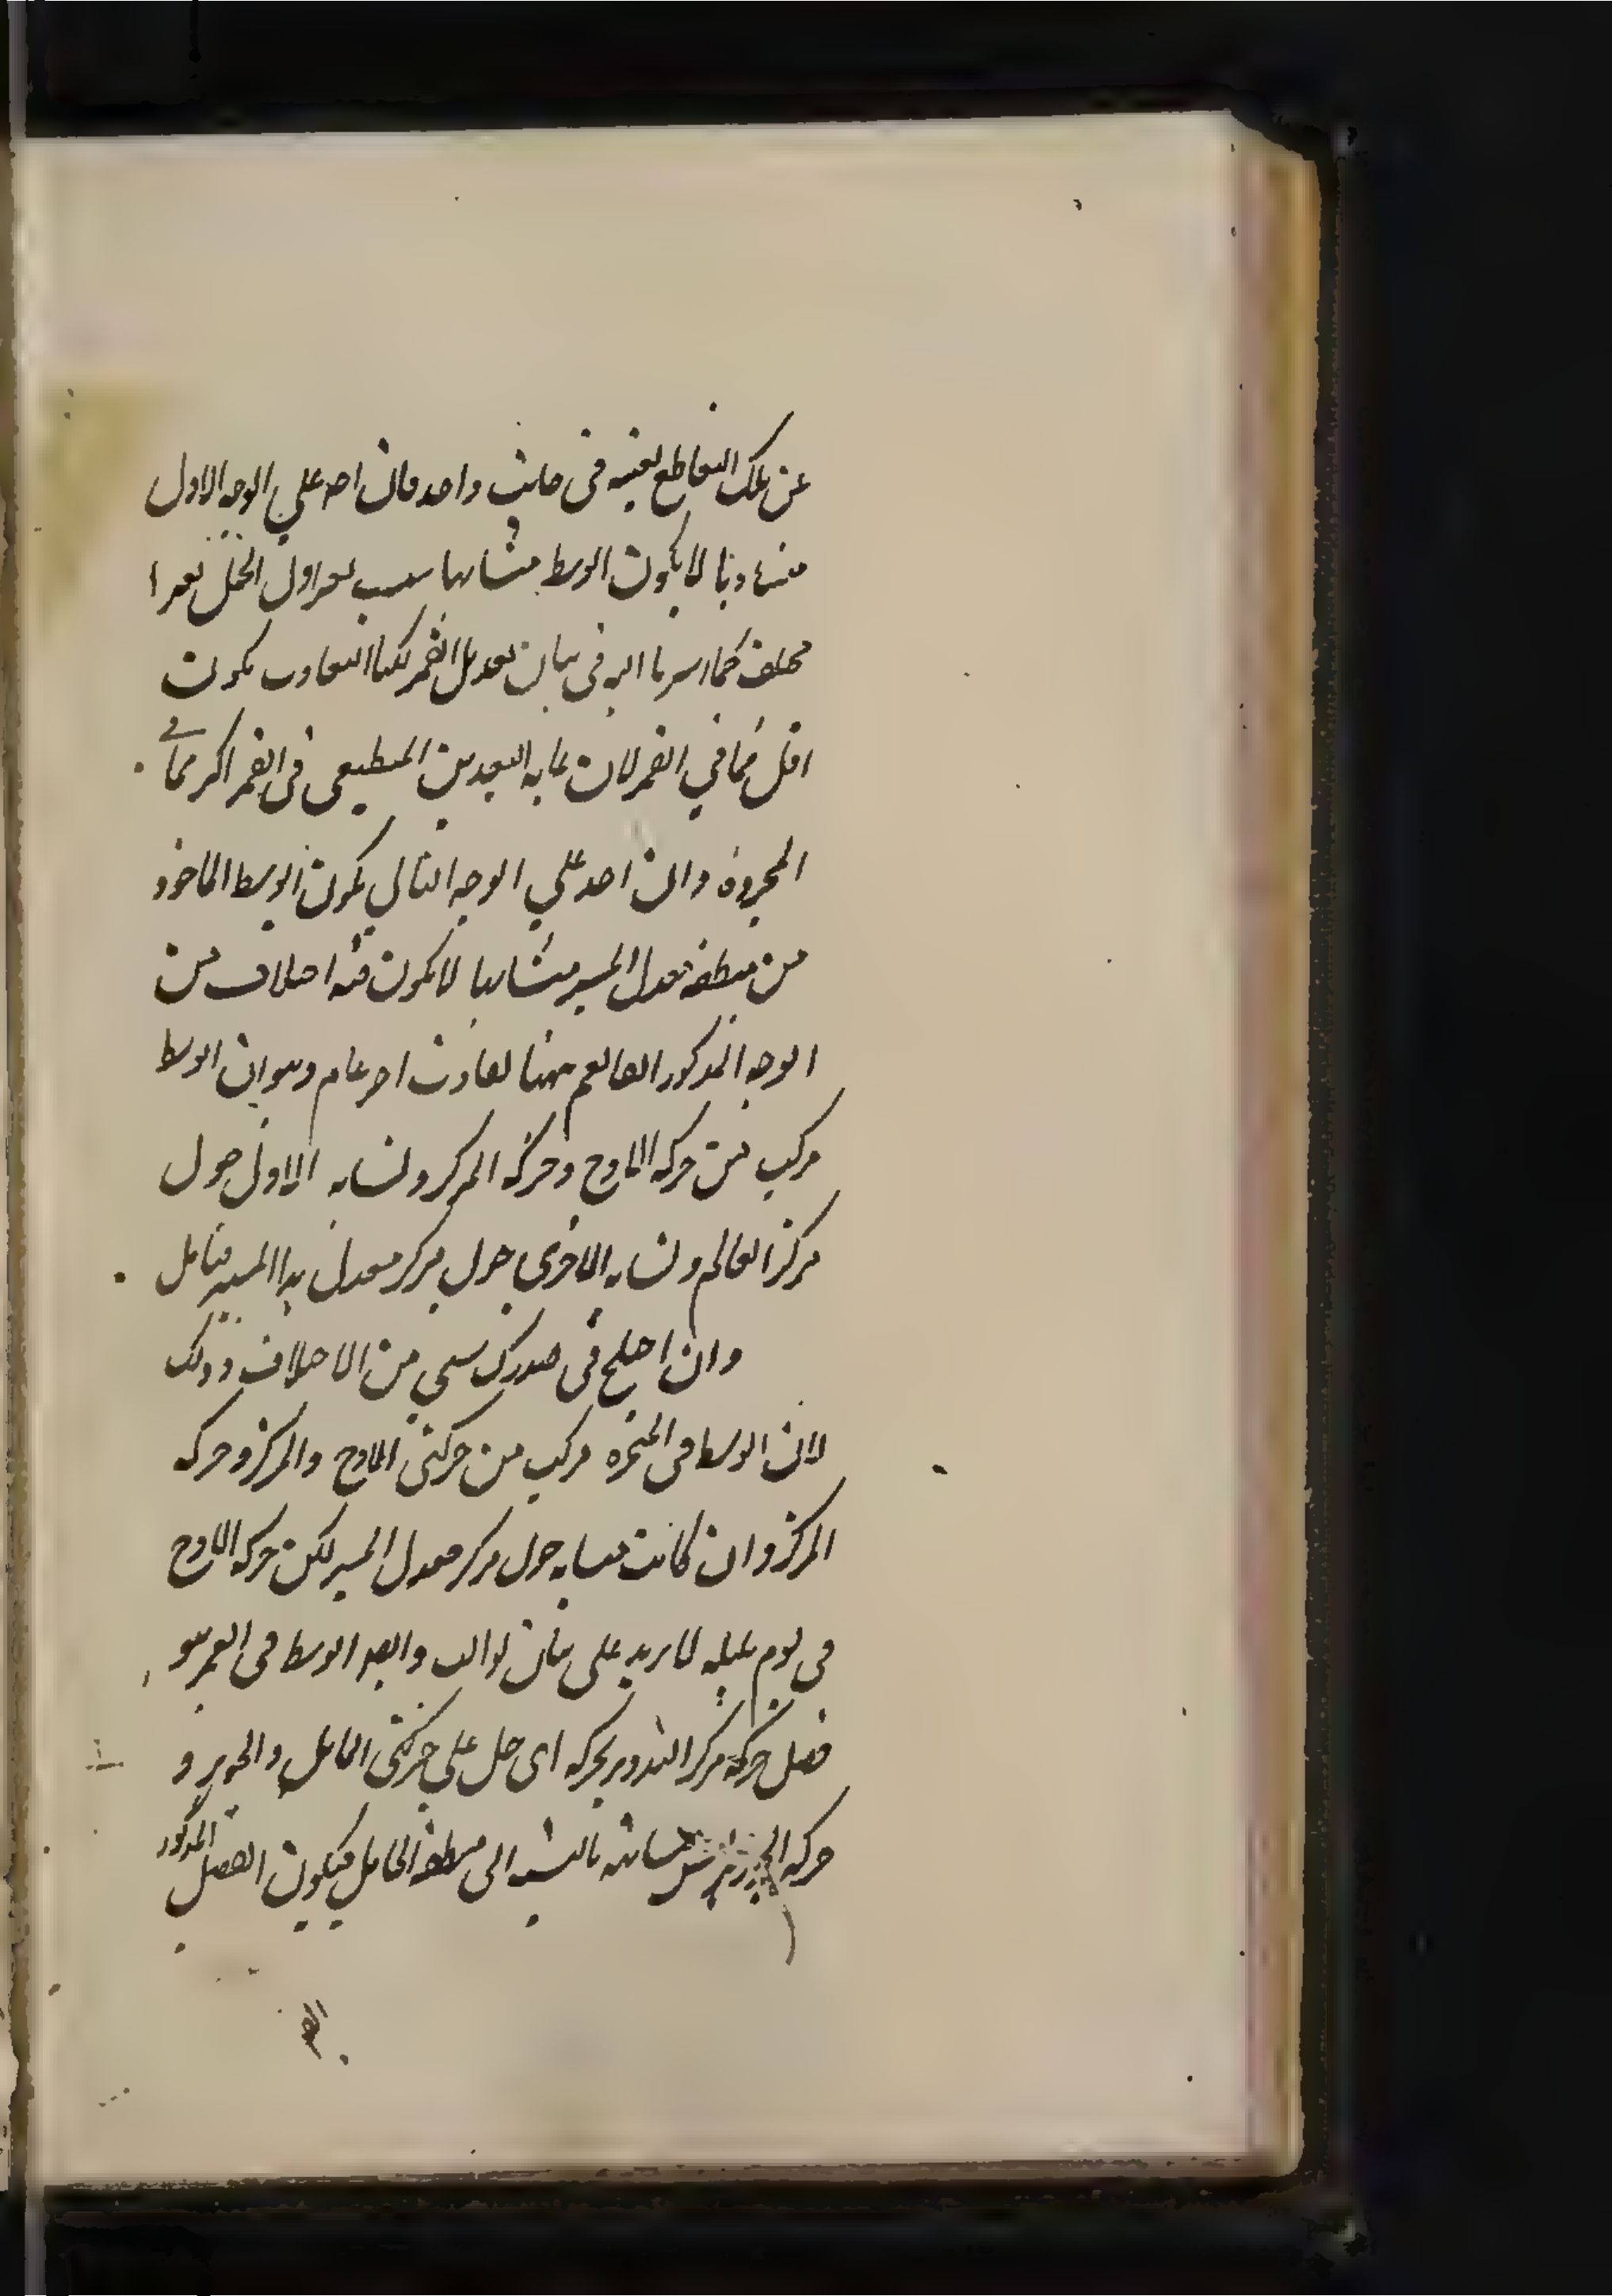 عن تلك التقاطع بعينه فى جانب واحد فان اخذ على الوجه الاول
متساويا لا يكون الوسط متشابها بسبب بعد اول الحمل بعدا
مختلف كما اشرنا اليه فى بيان تعديل القمر لكن التفاوت يكون
اقل مما في القمر لان غاية البعد بين المنطقتين فى القمر اكثر مما في
المتحيرة وان اخذ علي الوجه الثاني يكون الوسط الماخوذ
من منطقة معدل المسير متشابها لا يكون فيه اختلاف من
الوجه المذكور الفا نعم ههنا تفاوت اخر عام وهو ان الوسط
مركب من حركة الاوج وحركة المركز وتشابه الاولى حول
مركز العالم وتشابه الاخرى حول مركز معدل المسير فتامل
وان اختلج فى صدرك شيئ من الاختلاف وذلك
لان الوسط فى المتحيرة مركب من حركتى الاوج والمركز وحركة
المركز وان كانت متشابهة حول مركز معدل المسير لكن حركة الاوج
فى يوم بليلة لا يزيد على ثمان ثوالث وايضا الوسط فى القمر هو
فضل حركة مركز التدوير بحركة الحامل علي حركتى المائل والجوزهر و
حركة الجوزهر متشابهة بالنسبة الى منطقة الحامل فيكون الفضل المذكور